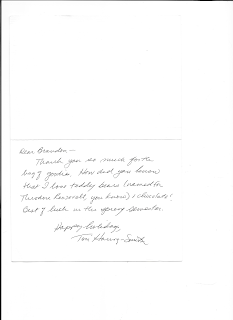 Dear Brandon –
Thank you so much for the
bag of goodies. How did you know
that I love teddy bears (named for
Theodore Roosevelt, you know) & chocolate!
Best of luck in the spring semester.
Happy holidays,
Tom